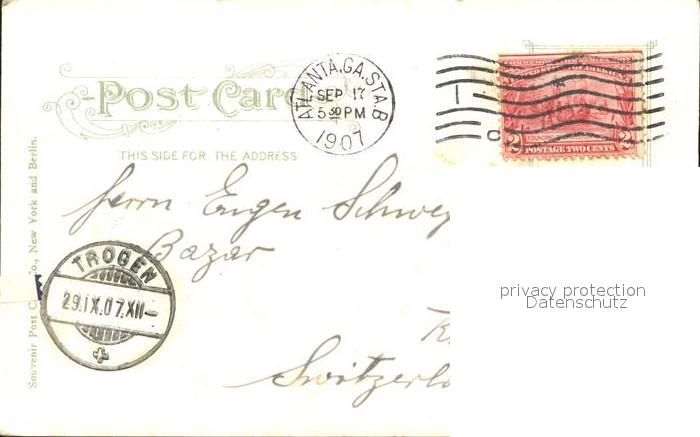 Post Card
THIS SIDE FOR THE ADDRESS
ATLANTA, GA. STA. B
SEP 17
5 30 PM
1907
POSTAGE TWO CENTS
2 2
Herrn Eugen
Bazar
TROGEN
29.IX.07.XII–
privacy protection
Datenschutz
Souvenir Post Co., New York and Berlin.